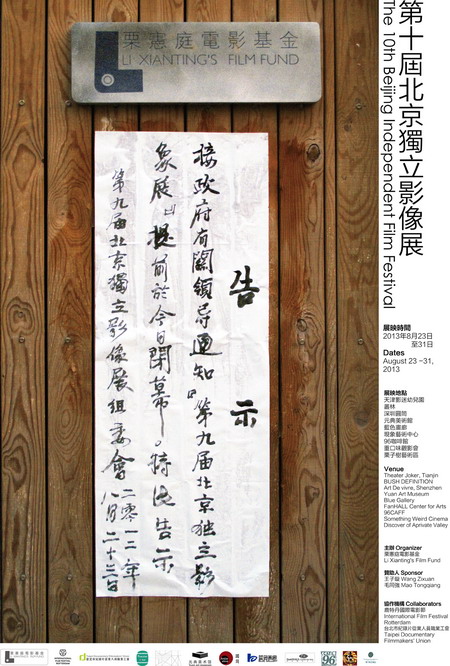 栗憲庭電影基金
LI XIANTING'S FILM FUND
告示
接政府有關領导通知『第九届北京独立影
象展』提前於今日閉幕,特此告示
第九届北京獨立影像展組委會
二零一二年
八月二十三日
第十屆北京獨立影像展
The 10th Beijing Independent Film Festival
展映時間
2013年8月23日
至31日
Dates
August 23 –31,
2013
展映地點
天津影迷幼兒園
叢林
深圳圓筒
元典美術館
藍色畫廊
現象藝術中心
96咖啡館
重口味觀影會
栗子樹藝術區
Venue
Theater Joker, Tianjin
BUSH DEFINITION
Art De vivre, Shenzhen
Yuan Art Museum
Blue Gallery
FanHALL Center for Arts
96CAFF
Something Weird Cinema
Discover of Aprivate Valley
主辦 Organizer
栗憲庭電影基金
Li Xianting's Film Fund
贊助人 Sponsor
王子璇 Wang Zixuan
毛同強 Mao Tongqiang
協作機構 Collaborators
鹿特丹國際電影節
International Film Festival
Rotterdam
台北市紀錄片從業人員職業工會
Taipei Documentary
Filmmakers' Union